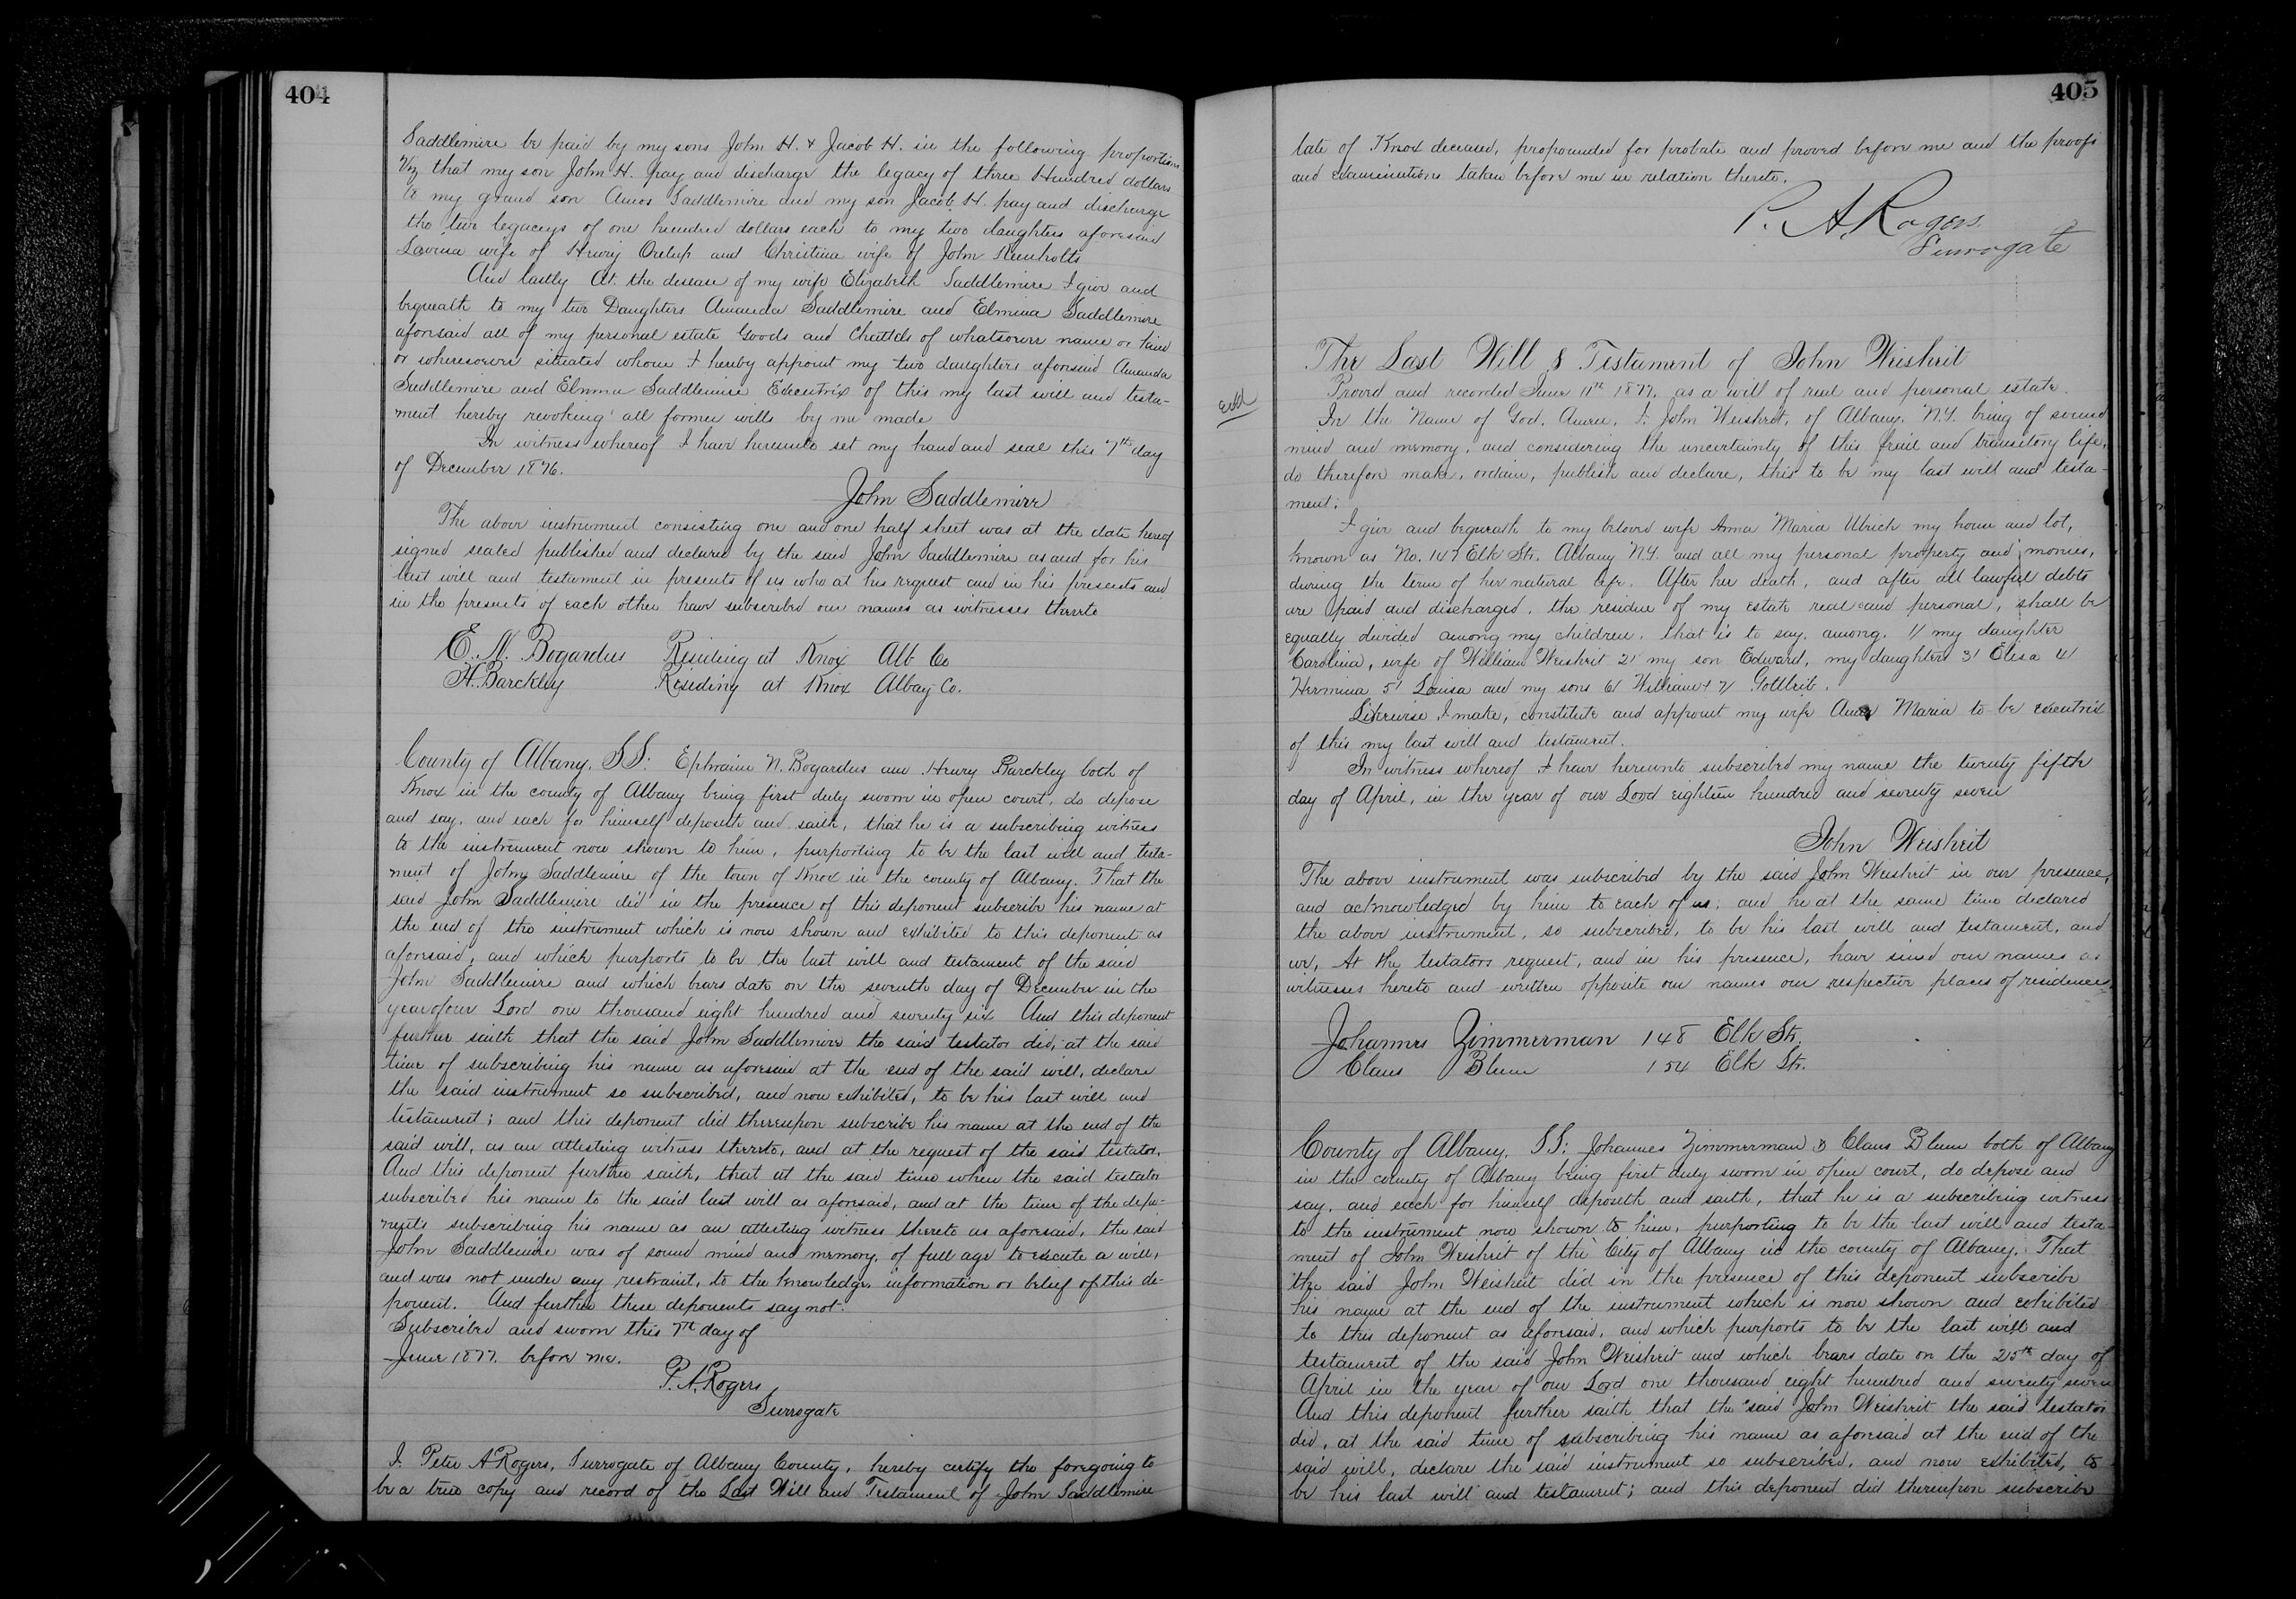 404
Saddlemire be paid by my sons John H. & Jacob H. in the following proportions
Viz that my son John H. pay and discharge the legacy of three Hundred dollars
to my grand son Amos Saddlemire and my son Jacob H. pay and discharge
the two legacys of one hundred dollars each to my two daughters aforesaid
Lavina wife of Henry and Christina wife of John
And lastly At the decease of my wife Elizabeth Saddlemire I give and
bequeath to my two Daughters Amanda Saddlemire and Elmina Saddlemire
aforesaid all of my personal estate Goods and Chattels of whatsoever name or kind
or wheresoever situated whome I hereby appoint my two daughters aforesaid Amanda
Saddlemire and Elmina Saddlemire Executrix of this my last will and testa-
ment hereby revoking all former wills by me made
In witness whereof I have hereunto set my hand and seal this 7th day
of December 1876.
John Saddlemire
The above instrument consisting one and one half sheet was at the date hereof
signed sealed published and declared by the said John Saddlemire as and for his
last will and testament in presents of us who at his request and in his presents and
in the presents of each other have subscribed our names as witnesses thereto
E. N. Bogardus Residing at Knox Alb Co
H. Barckley Residing at Knox Albay Co.
County of Albany. SS: Ephraim N. Bogardus and Henry Barckley both of
Knox in the county of Albany being first duly sworn in open court, do depose
and say, and each for himself deposeth and saith, that he is a subscribing witness
to the instrument now shown to him, purporting to be the last will and testa-
ment of John Saddlemire of the town of Knox in the county of Albany. That the
said John Saddlemire did in the presence of this deponent subscribe his name at
the end of the instrument which is now shown and exhibited to this deponent as
aforesaid, and which purports to be the last will and testament of the said
John Saddlemire and which bears date on the seventh day of December in the
year of our Lord one thousand eight hundred and seventy six And this deponent
further saith that the said John Saddlemire the said testator did, at the said
time of subscribing his name as aforesaid at the end of the said will, declare
the said instrument so subscribed, and now exhibited, to be his last will and
testament; and this deponent did thereupon subscribe his name at the end of the
said will, as an attesting witness thereto, and at the request of the said testator.
And this deponent further saith, that at the said time when the said testator
subscribed his name to the said last will as aforesaid, and at the time of the depo-
nents subscribing his name as an attesting witness thereto as aforesaid, the said
John Saddlemire was of sound mind and memory, of full age to execute a will,
and was not under any restraint, to the knowledge, information or belief of this de-
ponent. And further these deponents say not.
Subscribed and sworn this 7th day of
June 1877. before me.
P. A. Rogers
Surrogate
I. Peter A Rogers, Surrogate of Albany County, hereby certify the foregoing to
be a true copy and record of the Last Will and Testament of John Saddlemire
405
late of Knox deceased, propounded for probate and proved before me and the proofs
and examinations taken before me in relation thereto.
P. A. Rogers
Surrogate
The Last Will & Testament of John Weisheit
Proved and recorded June 11th 1877. as a will of real and personal estate.
In the Name of God. Amen. I. John Weisheit, of Albany. N.Y. being of sound
mind and memory, and considering the uncertainty of this frail and transitory life,
do therefore make, ordain, publish and declare, this to be my last will and testa-
ment:
I give and bequeath to my beloved wife Anna Maria Ulrich my house and lot,
known as No. 147 Elk Str. Albany N.Y. and all my personal property and monies,
during the term of her natural life. After her death, and after all lawful debts
are paid and discharged, the residue of my estate real and personal, shall be
equally divided among my children, that is to say, among. 1/ my daughter
Carolina, wife of William Weisheit 2/ my son Edward, my daughters 3/ Elisa 4/
Hermina 5/ Louisa and my sons 6/ William & 7/ Gottlieb.
Likewise I make, constitute and appoint my wife Anna Maria to be executrix
of this my last will and testament.
In witness whereof I have hereunto subscribed my name the twenty fifth
day of April, in the year of our Lord eighteen hundred and seventy seven
John Weisheit
The above instrument was subscribed by the said John Weisheit in our presence,
and acknowledged by him to each of us; and he at the same time declared
the above instrument, so subscribed, to be his last will and testament, and
we, At the testators request, and in his presence, have our names as
witnesses hereto and written opposite our names our respective places of residence.
Johannes Zimmerman 148 Elk Str.
Claus Blum 154 Elk Str.
County of Albany. SS: Johannes Zimmerman & Claus Blum both of Albany
in the county of Albany being first duly sworn in open court, do depose and
say, and each for himself deposeth and saith, that he is a subscribing witness
to the instrument now shown to him, purporting to be the last will and testa-
ment of John Weisheit of the City of Albany in the county of Albany. That
the said John Weisheit did in the presence of this deponent subscribe
his name at the end of the instrument which is now shown and exhibited
to this deponent as aforesaid, and which purports to be the last will and
testament of the said John Weisheit and which bears date on the 25th day of
April in the year of our Lord one thousand eight hundred and seventy seven
And this deponent further saith that the said John Weisheit the said testator
did, at the said time of subscribing his name as aforesaid at the end of the
said will, declare the said instrument so subscribed, and now exhibited, to
be his last will and testament; and this deponent did thereupon subscribe